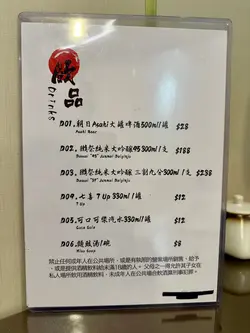 飲品
Drinks
D01. 朝日Asahi大罐啤酒500ml/罐 $28
Asahi Beer
D02. 獺祭純米大吟釀45 300ml/支 $188
Dassai "45" Junmai Daiginjo
D03. 獺祭純米大吟釀 三割九分300ml/支 $238
Dassai "39" Junmai Daiginjo
D04. 七喜 7 Up 330ml/罐 $12
7 Up
D05. 可口可樂汽水330ml/罐 $12
Coca Cola
D06. 麵豉湯/碗 $8
Miso Soup
禁止任何成年人在公共場所，或是有執照的營業場所銷售、給予、
或是提供酒精飲料給未滿18歲的人。父母之一得允許其子女在
私人場所飲用酒精飲料，未成年人在公共場合飲酒當刑事犯罪。